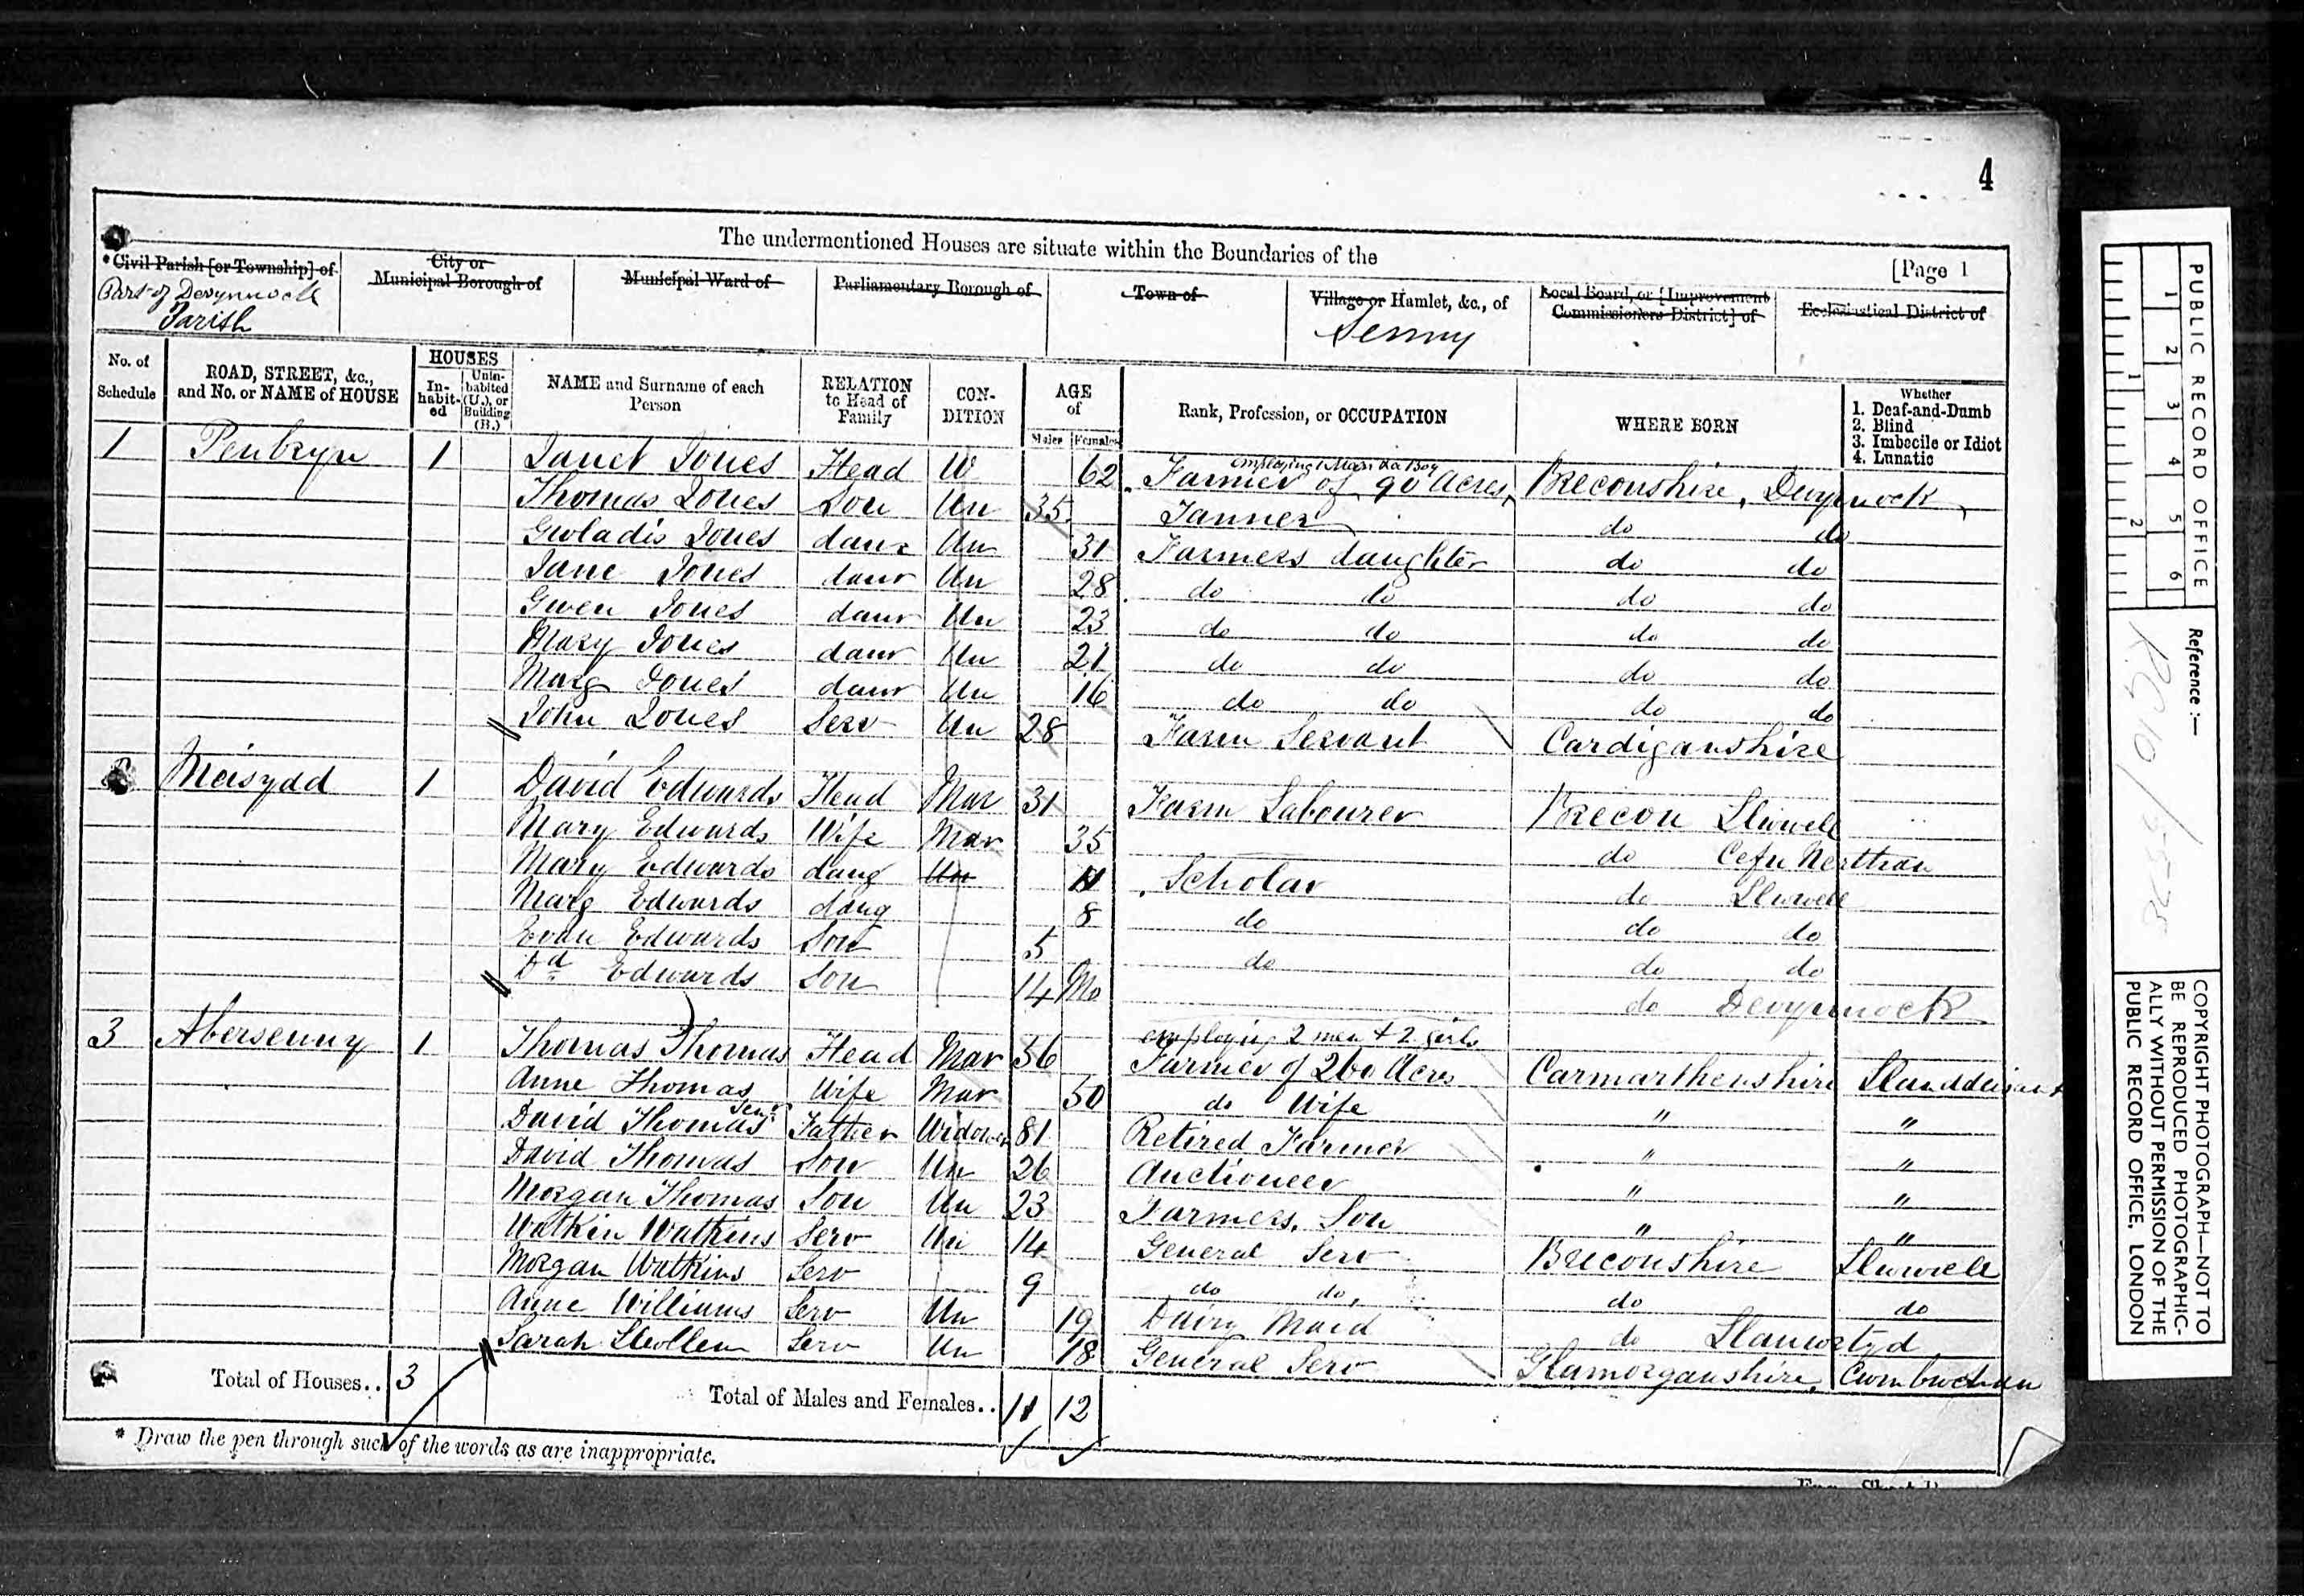 4
The undermentioned Houses are situate within the Boundaries of the
[Page 1
* Civil Parish [or Township] of
City or Municipal Borough of
Municipal Ward of
Parliamentary Borough of
Town of
Village or Hamlet, &c., of
Local Board, or [Improvement Commissioners District] of
Ecclesiastical District of
Part of Devynnock
Parish
Senny
No. of Schedule
ROAD, STREET, &c., and No. or NAME of HOUSE
HOUSES
In-habit-ed
Unin-habited (U.), or Building (B.)
NAME and Surname of each Person
RELATION to Head of Family
CON-DITION
AGE of
Males Females
Rank, Profession, or OCCUPATION
WHERE BORN
Whether
1. Deaf-and-Dumb
2. Blind
3. Imbecile or Idiot
4. Lunatic
employing 1 Man & a Boy
1 Penbryn 1 Janet Jones Head W 62 Farmer of 90 Acres, Breconshire, Devynnock
Thomas Jones Son Un 35 Tanner do do
Gwladis Jones daur Un 31 Farmers daughter do do
Jane Jones daur Un 28 do do do do
Gwen Jones daur Un 23 do do do do
Mary Jones daur Un 21 do do do do
Marg Jones daur Un 16 do do do do
John Jones Serv Un 28 Farm Servant Cardiganshire
Meisydd 1 David Edwards Head Mar 31 Farm Labourer Brecon Llywell
Mary Edwards Wife Mar 35 do Cefn
Mary Edwards daug Un 11 Scholar do Llywell
Marg Edwards daug 8 do do do
Evan Edwards Son 5 do do do
Dd Edwards Son 14 Mo do Devynnock
employing 2 men + 2 girls
3 Abersenny 1 Thomas Thomas Head Mar 56 Farmer of 260 Acres Carmarthenshire Llanddeusant
Anne Thomas Wife Mar 50 do Wife " "
David Thomas Senr Father Widower 81 Retired Farmer " "
David Thomas Son Un 26 Auctioneer " "
Morgan Thomas Son Un 23 Farmers Son " "
Watkin Watkins Serv Un 14 General Serv Breconshire Llywell
Morgan Watkins Serv 9 do do, do do
Anne Williams Serv Un 19 Dairy Maid do Llanwrtyd
Sarah Serv Un 18 General Serv Glamorganshire,
Total of Houses.. 3
Total of Males and Females.. 11 12
* Draw the pen through such of the words as are inappropriate.
PUBLIC RECORD OFFICE
1 2 3 4 5 6
1 2
Reference :—
RG 10/5538
COPYRIGHT PHOTOGRAPH—NOT TO
BE REPRODUCED PHOTOGRAPHIC-
ALLY WITHOUT PERMISSION OF THE
PUBLIC RECORD OFFICE, LONDON